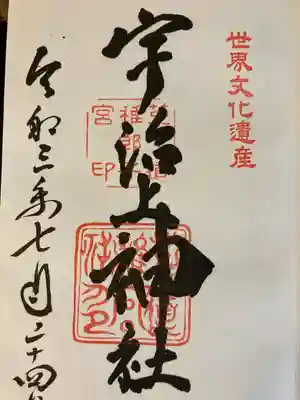 世界文化遺産
宇治上神社
令和三年七月二十四